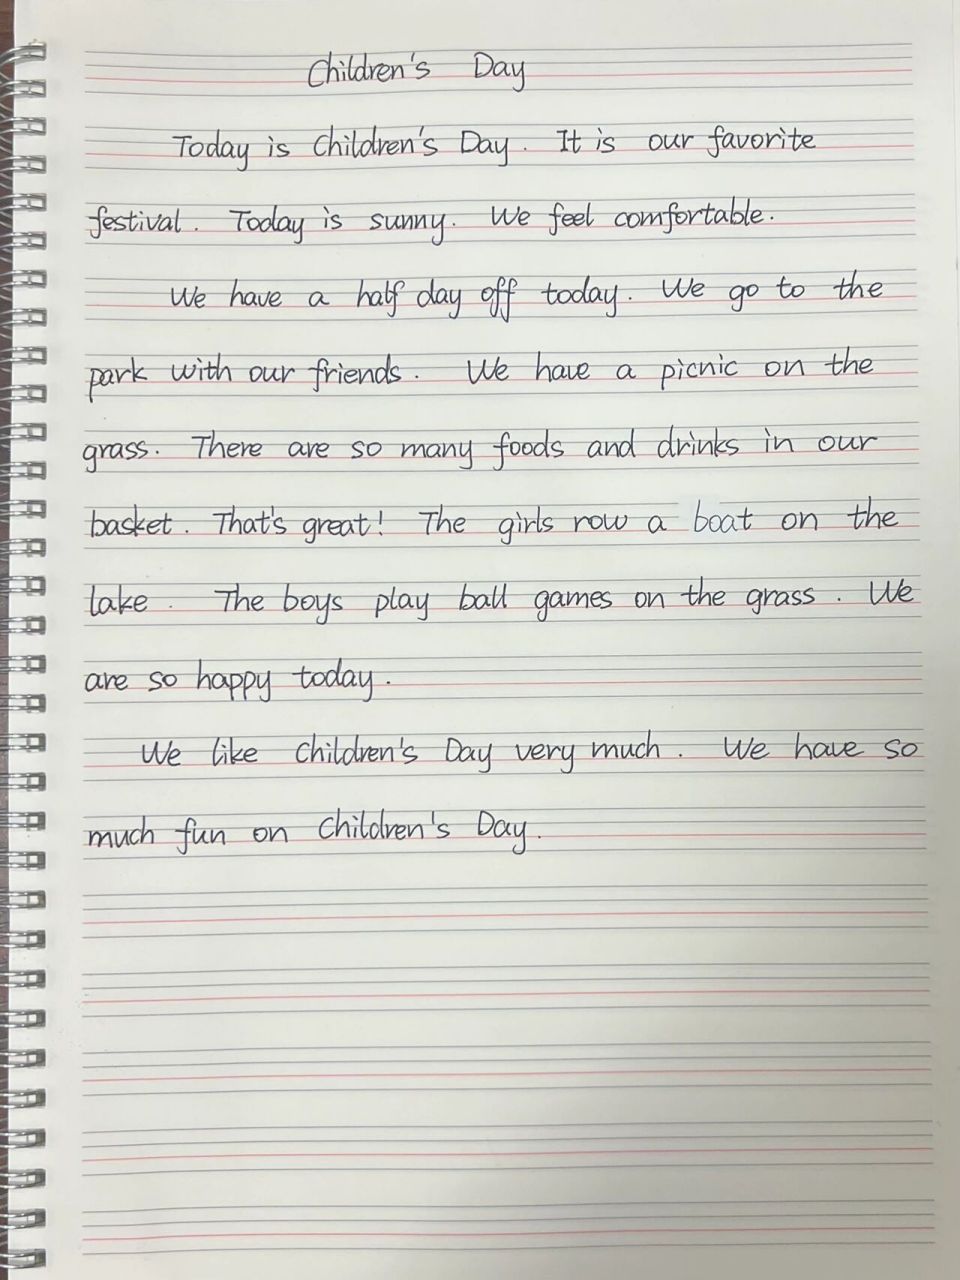 Children's Day
Today is Children's Day. It is our favorite
festival. Today is sunny. We feel comfortable.
We have a half day off today. We go to the
park with our friends. We have a picnic on the
grass. There are so many foods and drinks in our
basket. That's great! The girls row a boat on the
lake. The boys play ball games on the grass. We
are so happy today.
We like Children's Day very much. We have so
much fun on Children's Day.